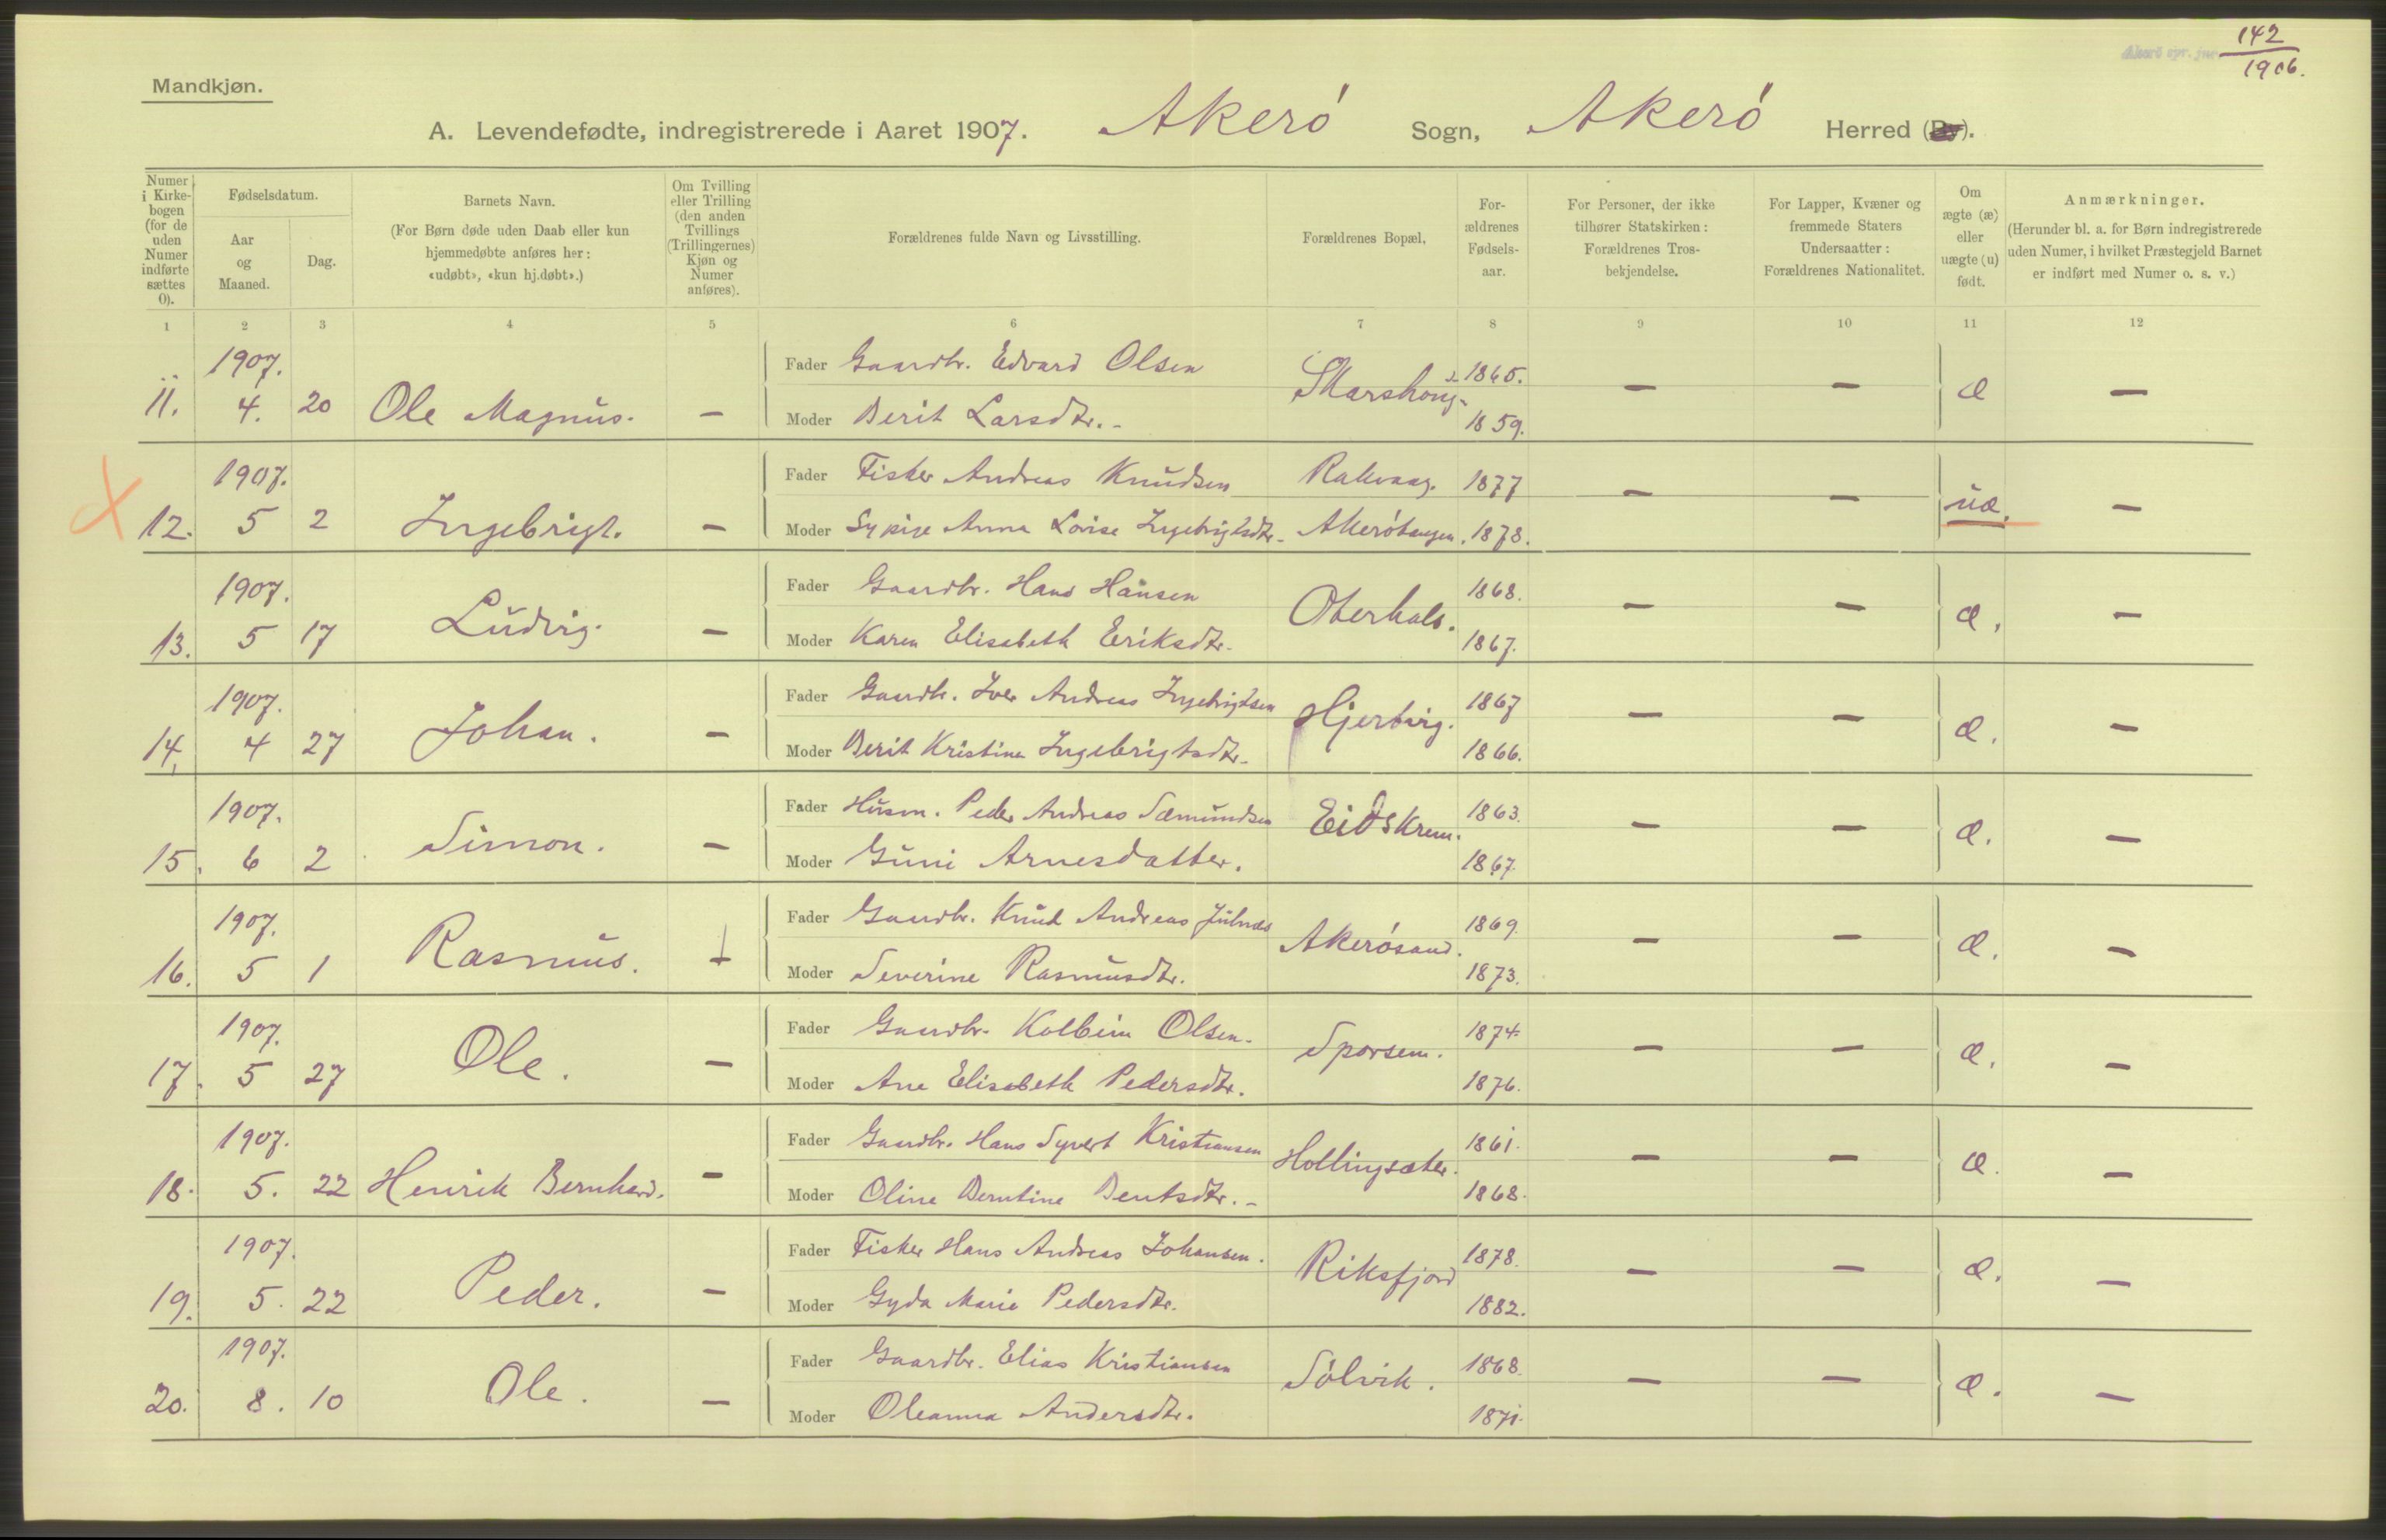 142
1906.
Mandkjøn.
A. Levendefødte, indregistrerede i Aaret 1907. Akerö Sogn, Akerö Herred (By).
Numer i Kirkebogen (for de uden Numer indførte sættes 0).
Fødselsdatum.
Aar og Maaned.
Dag.
Barnets Navn.
(For Børn døde uden Daab eller kun hjemmedøbte anføres her: «udøbt», «kun hj.døbt».)
Om Tvilling eller Trilling (den anden Tvillings (Trillingernes) Kjøn og Numer anføres).
Forældrenes fulde Navn og Livsstilling.
Forældrenes Bopæl.
Forældrenes Fødselsaar.
For Personer, der ikke tilhører Statskirken: Forældrenes Trosbekjendelse.
For Lapper, Kvæner og fremmede Staters Undersaatter: Forældrenes Nationalitet.
Om ægte (æ) eller uægte (u) født.
Anmærkninger.
(Herunder bl. a. for Børn indregistrerede uden Numer, i hvilket Præstegjeld Barnet er indført med Numer o. s. v.)
1 2 3 4 5 6 7 8 9 10 11 12
1907. Fader Gaardbr. Edvard Olsen 1865.
11. 4. 20 Ole Magnus. — Skarshoug. — — æ —
Moder Berit Larsdtr. 1859.
1907. Fader Fisker Andreas Knudsen Rakvaag. 1877
12. 5 2 Ingebrigt. — — — uæ. —
Moder Sypige Anna Lovise Ingebrigtsdtr. Akerötangen. 1878.
1907. Fader Gaardbr. Hans Hansen 1868.
13. 5 17 Ludvig. — Oterhals. — — æ. —
Moder Karen Elisabeth Eriksdtr. 1867.
1907. Fader Gaardbr. Iver Andreas Ingebrigtsen 1867
14. 4 27 Johan. — Hjertvig. — — æ. —
Moder Berit Kristine Ingebrigtsdtr. 1866.
1907. Fader Husm. Peder Andreas Sæmundsen 1863.
15. 6 2 Simon. — Eidskrem. — — æ. —
Moder Guni Arnesdatter. 1867.
1907. Fader Gaardbr. Knud Andreas Julnæs 1869.
16. 5 1 Rasmus. — Akerösand. — — æ. —
Moder Severine Rasmusdtr. 1873.
1907. Fader Gaardbr. Kolbein Olsen. 1874.
17. 5 27 Ole. — Sporsem. — — æ. —
Moder Ane Elisabeth Pedersdtr. 1876.
1907. Fader Gaardbr. Hans Syvert Kristiansen 1861.
18. 5. 22 Henrik Bernhard. — Hollingsæter. — — æ. —
Moder Oline Berntine Bentsdtr. 1868.
1907. Fader Fisker Hans Andreas Johansen. 1878.
19. 5. 22 Peder. — Riksfjord — — æ. —
Moder Gyda Marie Pedersdtr. 1882.
1907. Fader Gaardbr. Elias Kristiansen 1868.
20. 8. 10 Ole. — Sölvik. — — æ. —
Moder Oleanna Andersdtr. 1871.